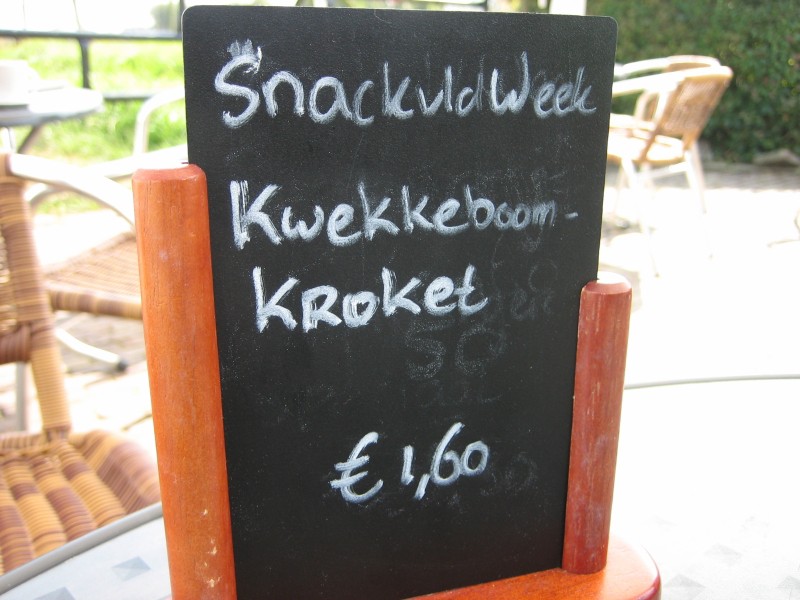 Snack vld Week
Kwekkeboom-
KROket
€ 1,60